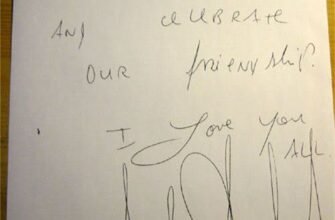 AND CELEBRATE
OUR friENDShip.
I Love You
ALL.